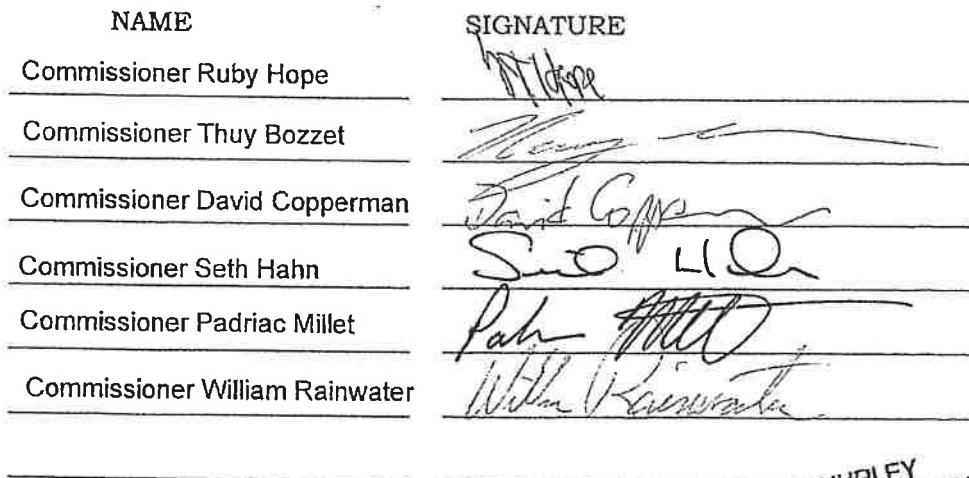 NAME SIGNATURE
Commissioner Ruby Hope Hope
Commissioner Thuy Bozzet
Commissioner David Copperman David Copp
Commissioner Seth Hahn
Commissioner Padriac Millet
Commissioner William Rainwater Rainwater
HURLEY